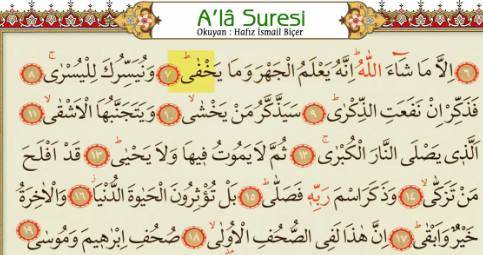 A'lâ Suresi
Okuyan : Hafız İsmail Biçer
﴿٦﴾ اِلَّا مَا شَٓاءَ اللّٰهُؕ اِنَّهُ يَعْلَمُ الْجَهْرَ وَمَا يَخْفٰىؕ ﴿٧﴾ وَنُيَسِّرُكَ لِلْيُسْرٰىۚ ﴿٨﴾
فَذَكِّرْ اِنْ نَفَعَتِ الذِّكْرٰىؕ ﴿٩﴾ سَيَذَّكَّرُ مَنْ يَخْشٰىۙ ﴿١٠﴾ وَيَتَجَنَّبُهَا الْاَشْقٰىۙ ﴿١١﴾
اَلَّذ۪ي يَصْلَى النَّارَ الْكُبْرٰىۚ ﴿١٢﴾ ثُمَّ لَا يَمُوتُ ف۪يهَا وَلَا يَحْيٰىؕ ﴿١٣﴾ قَدْ اَفْلَحَ
مَنْ تَزَكّٰىۙ ﴿١٤﴾ وَذَكَرَ اسْمَ رَبِّه۪ فَصَلّٰىؕ ﴿١٥﴾ بَلْ تُؤْثِرُونَ الْحَيٰوةَ الدُّنْيَاۘ ﴿١٦﴾ وَالْاٰخِرَةُ
خَيْرٌ وَاَبْقٰىؕ ﴿١٧﴾ اِنَّ هٰذَا لَفِي الصُّحُفِ الْاُو۫لٰىۙ ﴿١٨﴾ صُحُفِ اِبْرٰه۪يمَ وَمُوسٰى ﴿١٩﴾